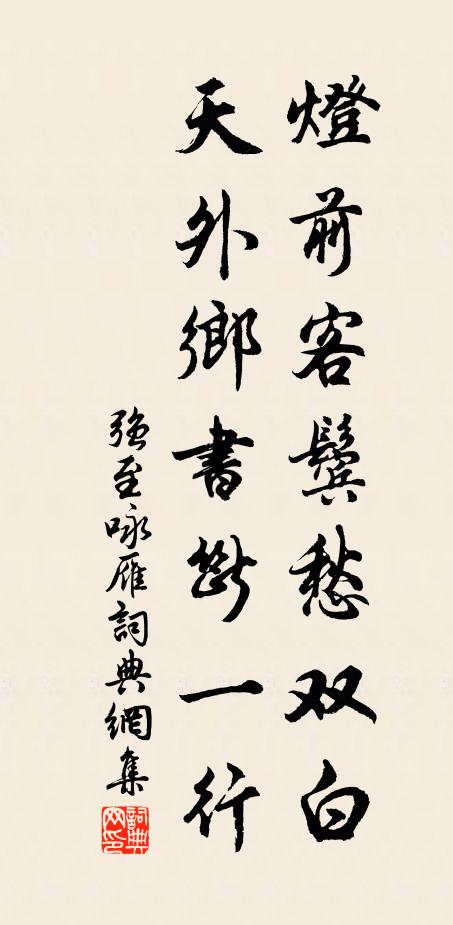 燈前客鬓愁双白
天外鄉書斷一行
強至咏雁詞典網集
詞典网印